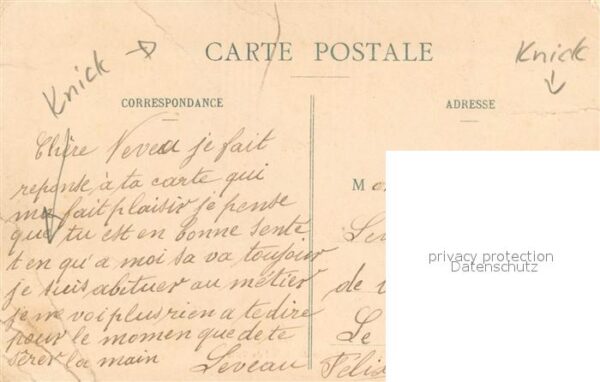 Knick
CARTE POSTALE
Knick
CORRESPONDANCE
ADRESSE
Chère Neveu je fait
reponse à ta carte qui
ma fait plaisir je pense
que tu est en bonne sente
t en qu'a moi sa va toujoir
je suis abituer au métier
je ne voi plus rien a te dire
pour le momen que de te
sèrer la main Leveau
M
de
Le
Félix
privacy protection
Datenschutz